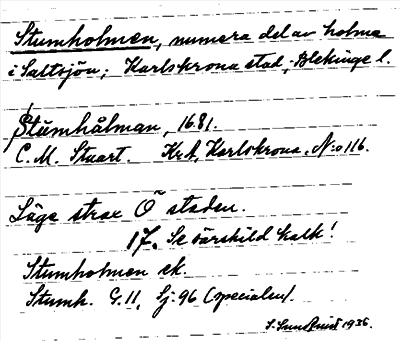 Stumholmen, numera del av holme
i Saltsjön; Karlskrona stad, Blekinge l.
Stŭmhålman, 1681.
C. M. Stuart. Kr.A. Karlskrona. N:o 116.
Läge strax Ö staden.
17. Se särskild kalk!
Stumholmen ek.
Stumh. G. 11, Sj: 96 (specialen).
1936.